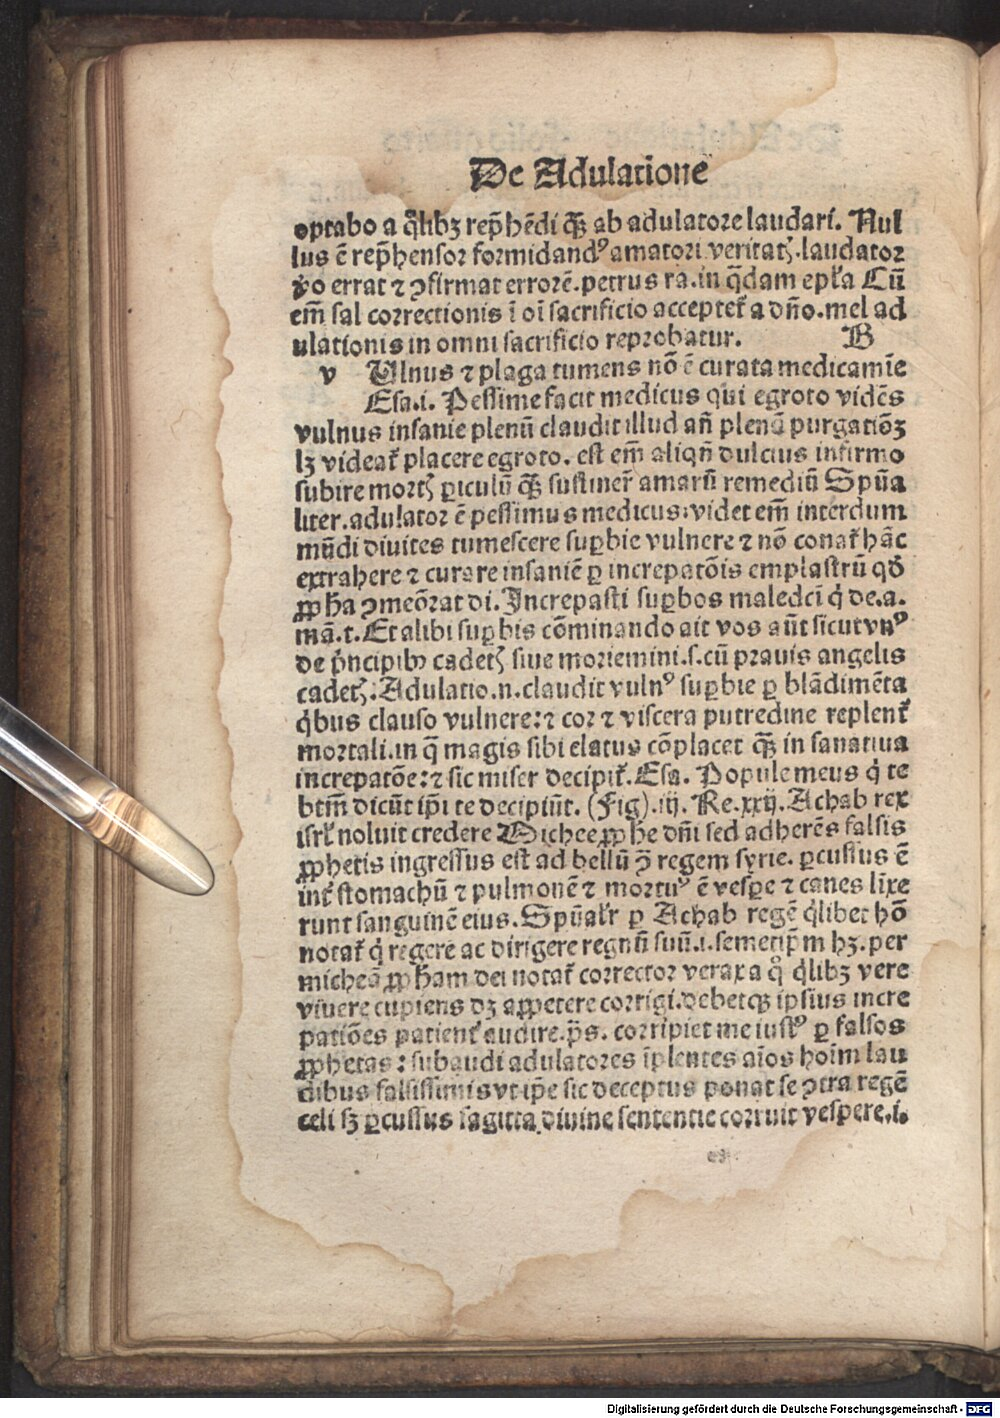 De Adulatione
optabo a qͦlibꝫ rep̄hēdi qꝫ̄ ab adulatore laudari. Nul
lus ē rep̄hensor formidandꝰ amatori veritatꝭ. laudator
v̓o errat ⁊ ꝯfirmat errorē. petrus ra. in q̄dam epl̓a Cū
em̄ sal correctionis ī oī sacrificio acceptet᷑ a dn̄o. mel ad
ulationis in omni sacrificio reprobatur. B
v Ulnus ⁊ plaga tumens nō ē curata medicamīe
Esa. i. Pessime facit medicus qui egroto vidēs
vulnus insanie plenū claudit illud an̄ plenā purgatiōꝫ
lꝫ videat᷑ placere egroto. est em̄ aliqn̄ dulcius infirmo
subire mortꝭ ꝑiculū qꝫ̄ sustiner̄ amarū remediū Spūa
liter. adulator ē pessimus medicus: videt em̄ interdum
mūdi diuites tumescere suꝑbie vulnere ⁊ nō conat᷑ hāc
extrahere ⁊ curare insaniē ꝑ increpatōis emplastrū qd̓
ꝓpha ꝯmeōrat di. Increpasti suꝑbos maledci̅ q̇ de. a.
mā. t. Et alibi suꝑbis cōminando ait vos aūt sicut vnꝰ
de p̓ncipibꝰ cadetꝭ siue moriemini. s. cū prauis angelis
cadetꝭ. Adulatio. n. claudit vulnꝰ suꝑbie ꝑ blādimēta
q̇bus clauso vulnere: ⁊ cor ⁊ viscera putredine replent᷑
mortali. in q̄ magis sibi elatus cōplacet qꝫ̄ in sanatiua
increpatōe: ⁊ sic miser decipit᷑. Esa. Popule meus q̇ te
btm̄ dicūt ip̄i te decipiūt. (Fig). iij. Re. xxij. Achab rex
isrl̓ noluit credere Michee ꝓphe dn̄i sed adherēs falsis
ꝓphetis ingressus est ad bellū ꝯ̄ regem syrie. ꝑcussus ē
int᷑ stomachū ⁊ pulmonē ⁊ mortuꝰ ē vesꝑe ⁊ canes līxe
runt sanguinē eius. Spūal̓r ꝑ Achab regē q̇libet hō
notat᷑ q̇ regere ac dirigere regnū suū. i. semetip̄m hꝫ. per
micheā ꝓpham dei notat᷑ corrector verax a qͦ q̇libꝫ vere
viuere cupiens dꝫ aꝓpetere corrigi. debetqꝫ ipsius incre
patiōes patient᷑ audire. p̄s. corripiet me iustꝰ ꝑ falsos
ꝓphetas: subaudi adulatores īplentes aīos hoīm lau
dibus falsissimis vt ip̄e sic deceptus ponat se ꝯtra regē
celi sꝫ ꝑcussus sagitta diuine sententie corruit vespere. i.
Digitalisierung gefördert durch die Deutsche Forschungsgemeinschaft - DFG